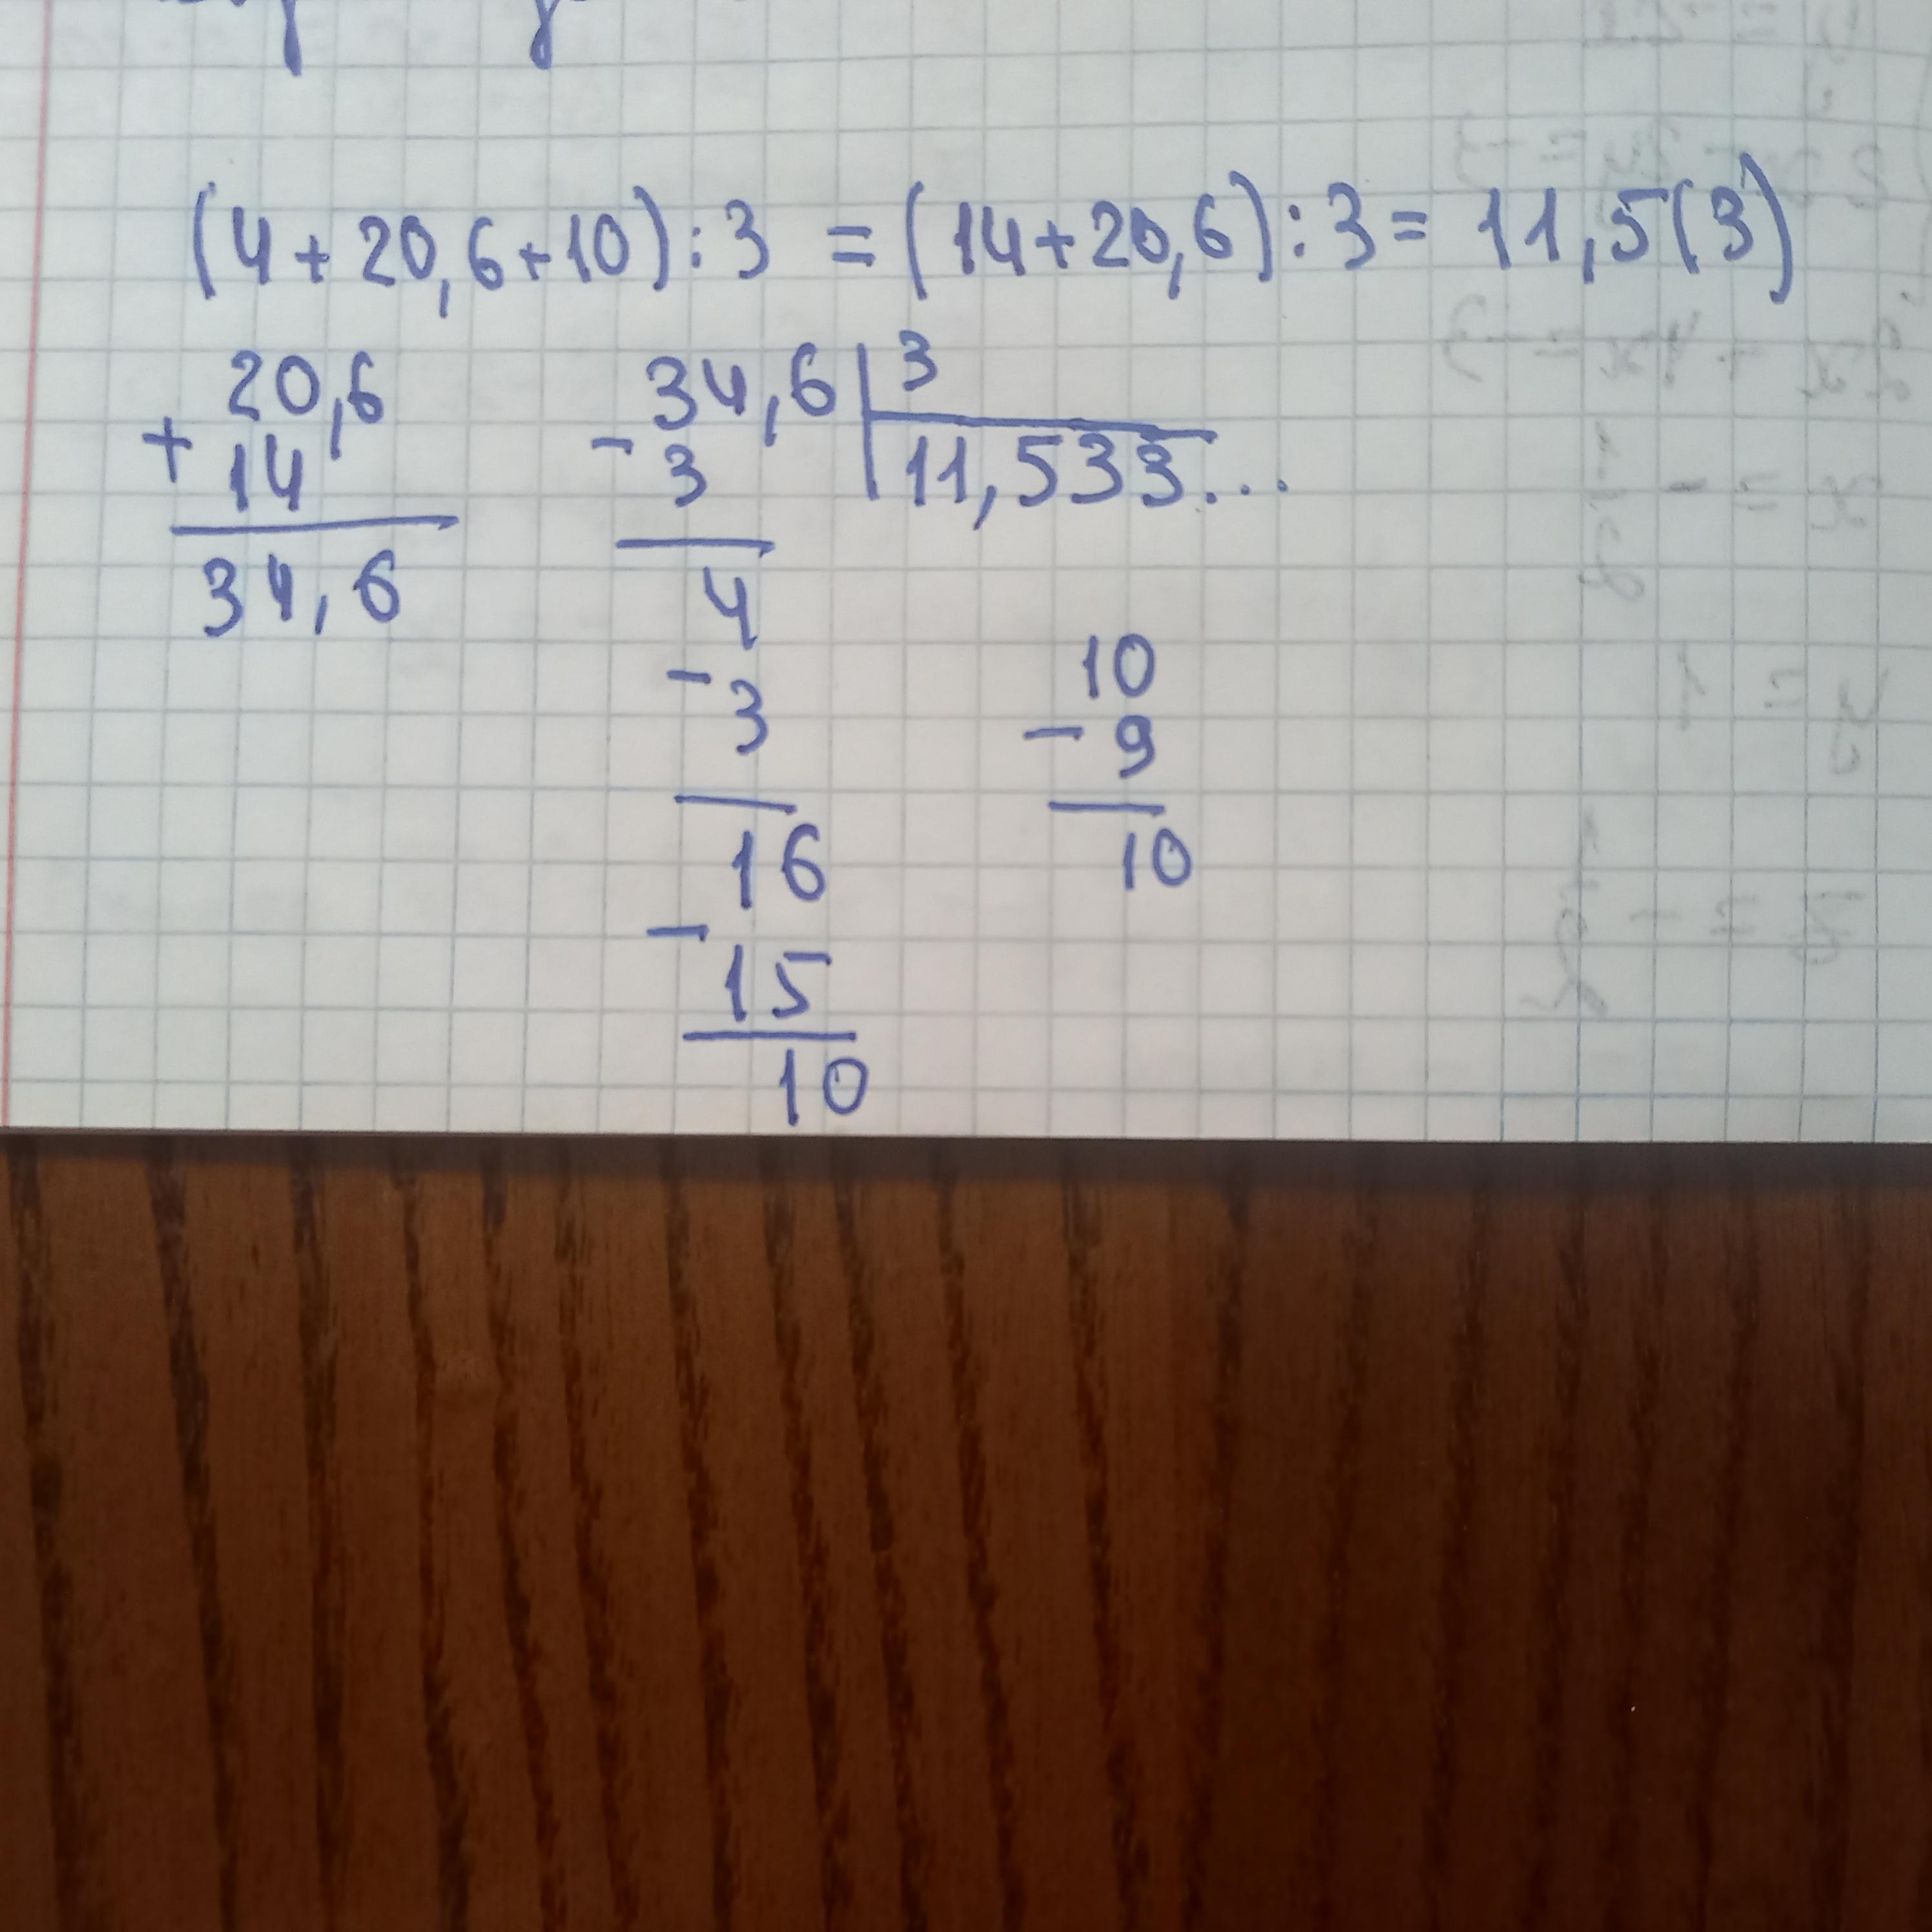 (4+20,6+10):3 = (14+20,6):3= 11,5(3)
20,6
+ 14
34,6
- 34,6 | 3
3 | 11,533...
4
- 3
16
- 15
10
10
- 9
10